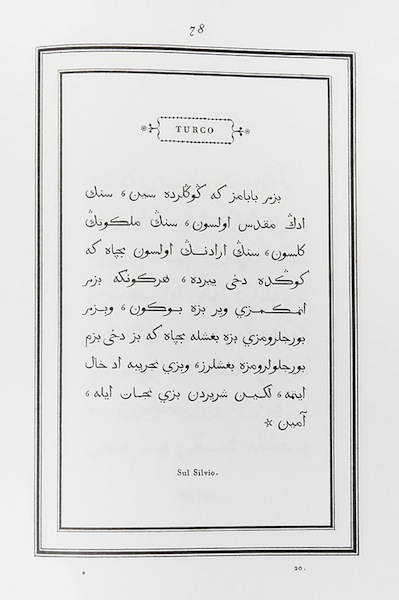 78
TURCO
بزم بابامز كه گوگلرده سين، سنك
ادڭ مقدس اولسون، سنڭ ملكوتڭ
كلسون، سنڭ ارادتڭ اولسون نجاه كه
كوكده دخى ييرده، هركونكه بزم
اتمكمزي وير بزه بوكون، وبزم
بورجلرومزي بزه بغشله نجاه كه بز دخى بزم
بورجلولرومزه بغشلرز، وبزي تجريبه اد خال
ايتمه، لكين شريردن بزي نجات ايله،
آمين *
Sul Silvio.
* 20.